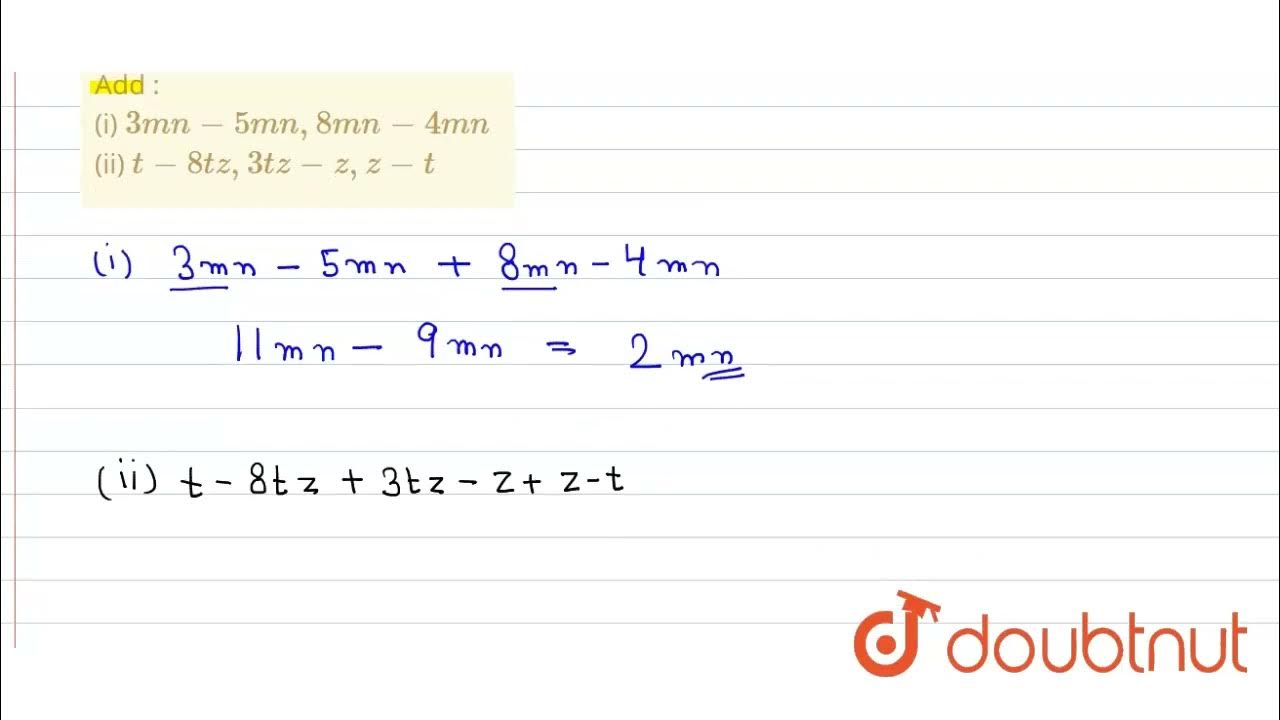 Add :
(i) 3mn − 5mn, 8mn − 4mn
(ii) t − 8tz, 3tz − z, z − t
(i) 3mn − 5mn + 8mn − 4mn
11mn − 9mn = 2mn
(ii) t − 8tz + 3tz − z + z − t
doubtnut